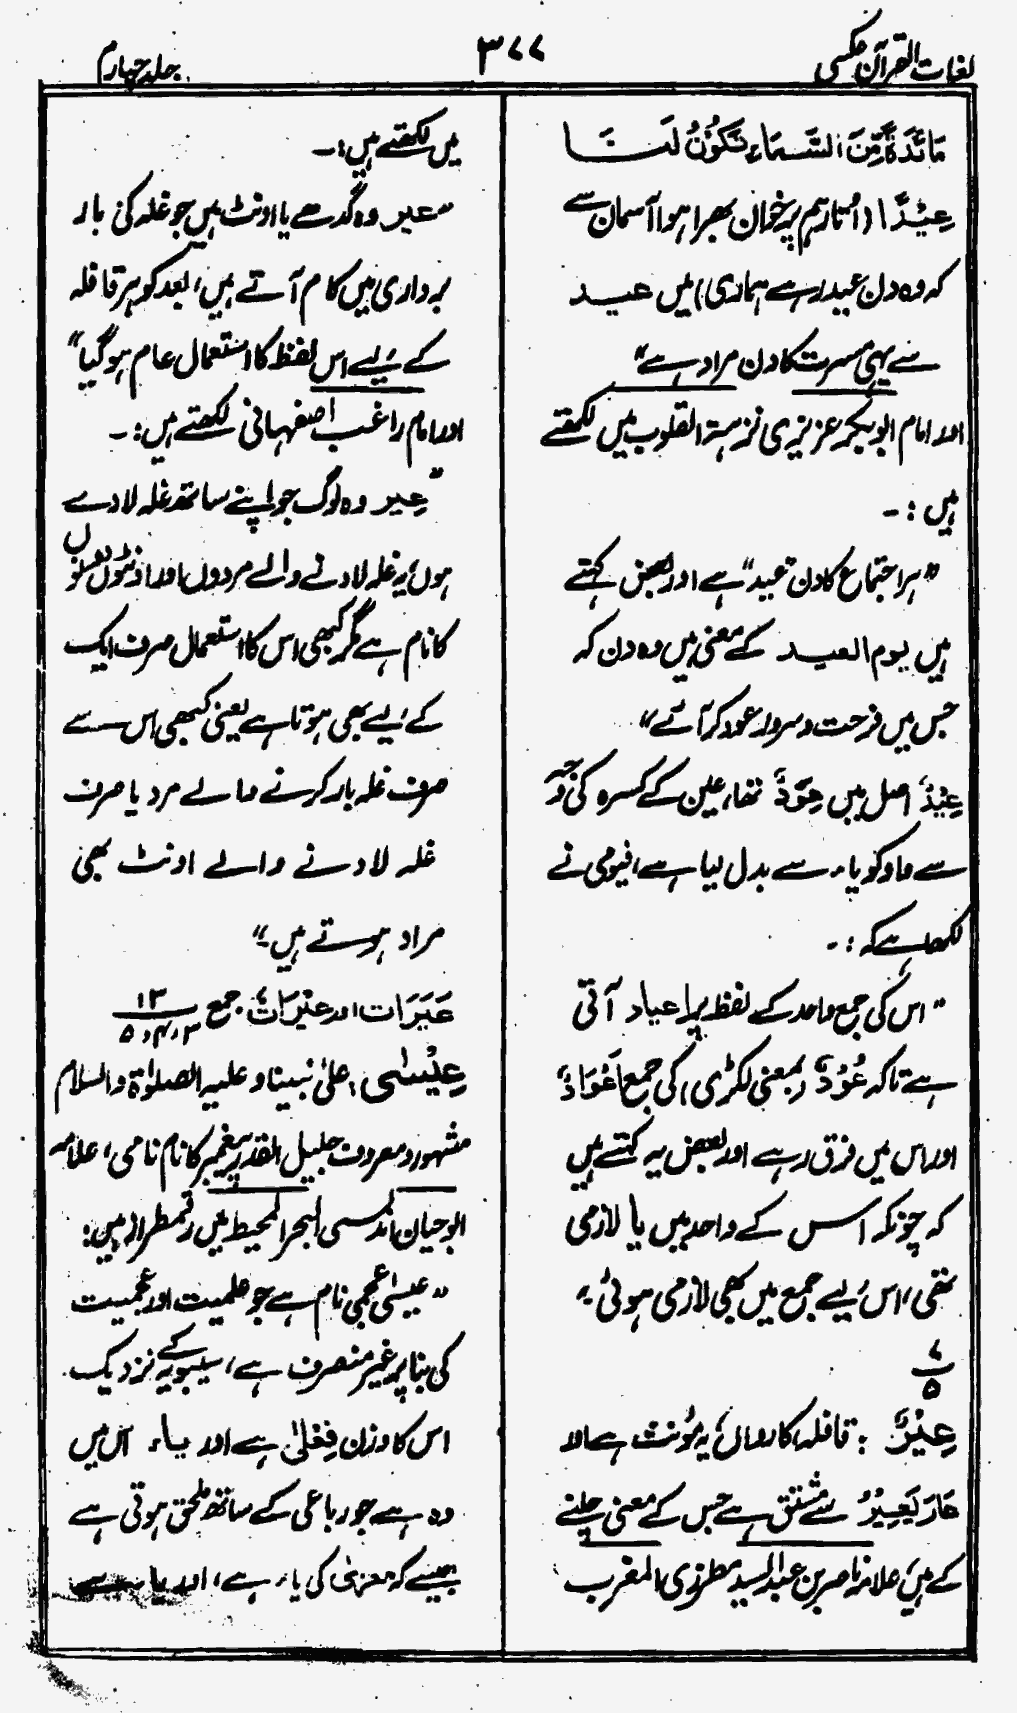 لغات القرآن عکسی
۳۷۷
جلد چہارم
مَائِدَةً مِّنَ السَّمَاءِ تَكُوْنُ لَنَا
عِيْدًا (اُتار ہم پر خوان بھرا ہوا آسمان سے
کہ وہ دن عید رہے ہماری) میں عید
سے یہی مسرت کا دن مراد ہے"
اور امام ابوبکر عزیزی نزہتہ القلوب میں لکھتے
ہیں :۔
"ہر اجتماع کا دن "عید" ہے اور بعض کہتے
ہیں یوم العید کے معنی ہیں وہ دن کہ
جس میں فرحت و سرور عود کر آئے"
عِیْدٌ اصل میں عِوْدٌ تھا، عین کے کسرہ کی وجہ
سے واو کو یاء سے بدل لیا ہے، فیومی نے
لکھا ہے کہ :۔
"اس کی جمع واحد کے لفظ پر اعیاد آتی
ہے تاکہ عُوْدٌ (بمعنی لکڑی) کی جمع اَعْوَادٌ
اور اس میں فرق رہے اور بعض یہ کہتے ہیں
کہ چونکہ اس کے واحد میں یا لازمی
تھی، اس لیے جمع میں بھی لازمی ہوئی"
۷
۵
عِیْرٌ : قافلہ، کارواں، یہ مؤنث ہے اور
عَارَ یَعِیْرُ سے مشتق ہے جس کے معنی چلنے
کے ہیں، علامہ ناصر بن عبدالسید مطرزی المغرب
میں لکھتے ہیں :۔
"عیر وہ گدھے یا اونٹ ہیں جو غلہ کی بار
برداری میں کام آتے ہیں، بعد کو ہر قافلہ
کے لیے اس لفظ کا استعمال عام ہو گیا"
اور امام راغب اصفہانی لکھتے ہیں :۔
"عیر وہ لوگ جو اپنے ساتھ غلہ لادے
ہوں، یہ غلہ لادنے والے مردوں اور اونٹوں دونوں
کا نام ہے مگر کبھی اس کا استعمال صرف ایک
کے لیے بھی ہوتا ہے یعنی کبھی اس سے
صرف غلہ بار کرنے والے مرد یا صرف
غلہ لادنے والے اونٹ بھی
مراد ہوتے ہیں"
عِیَرَات اور عِیْرَاتٌ جمع ۱۳
۵،۴،۳
عِیْسٰی (علیٰ نبینا و علیہ الصلوٰۃ والسلام
مشہور و معروف جلیل القدر پیغمبر کا نام نامی، علامہ
ابوحیان اندلسی البحر المحیط میں رقمطراز ہیں :
"عیسیٰ عجمی نام ہے جو علمیت اور عجمیت
کی بنا پر غیر منصرف ہے، سیبویہ کے نزدیک
اس کا وزن فِعْلٰی ہے اور یاء اس میں
وہ ہے جو رباعی کے ساتھ ملحق ہوتی ہے
جیسے کہ معزیٰ کی یاء ہے، اور یاء سے